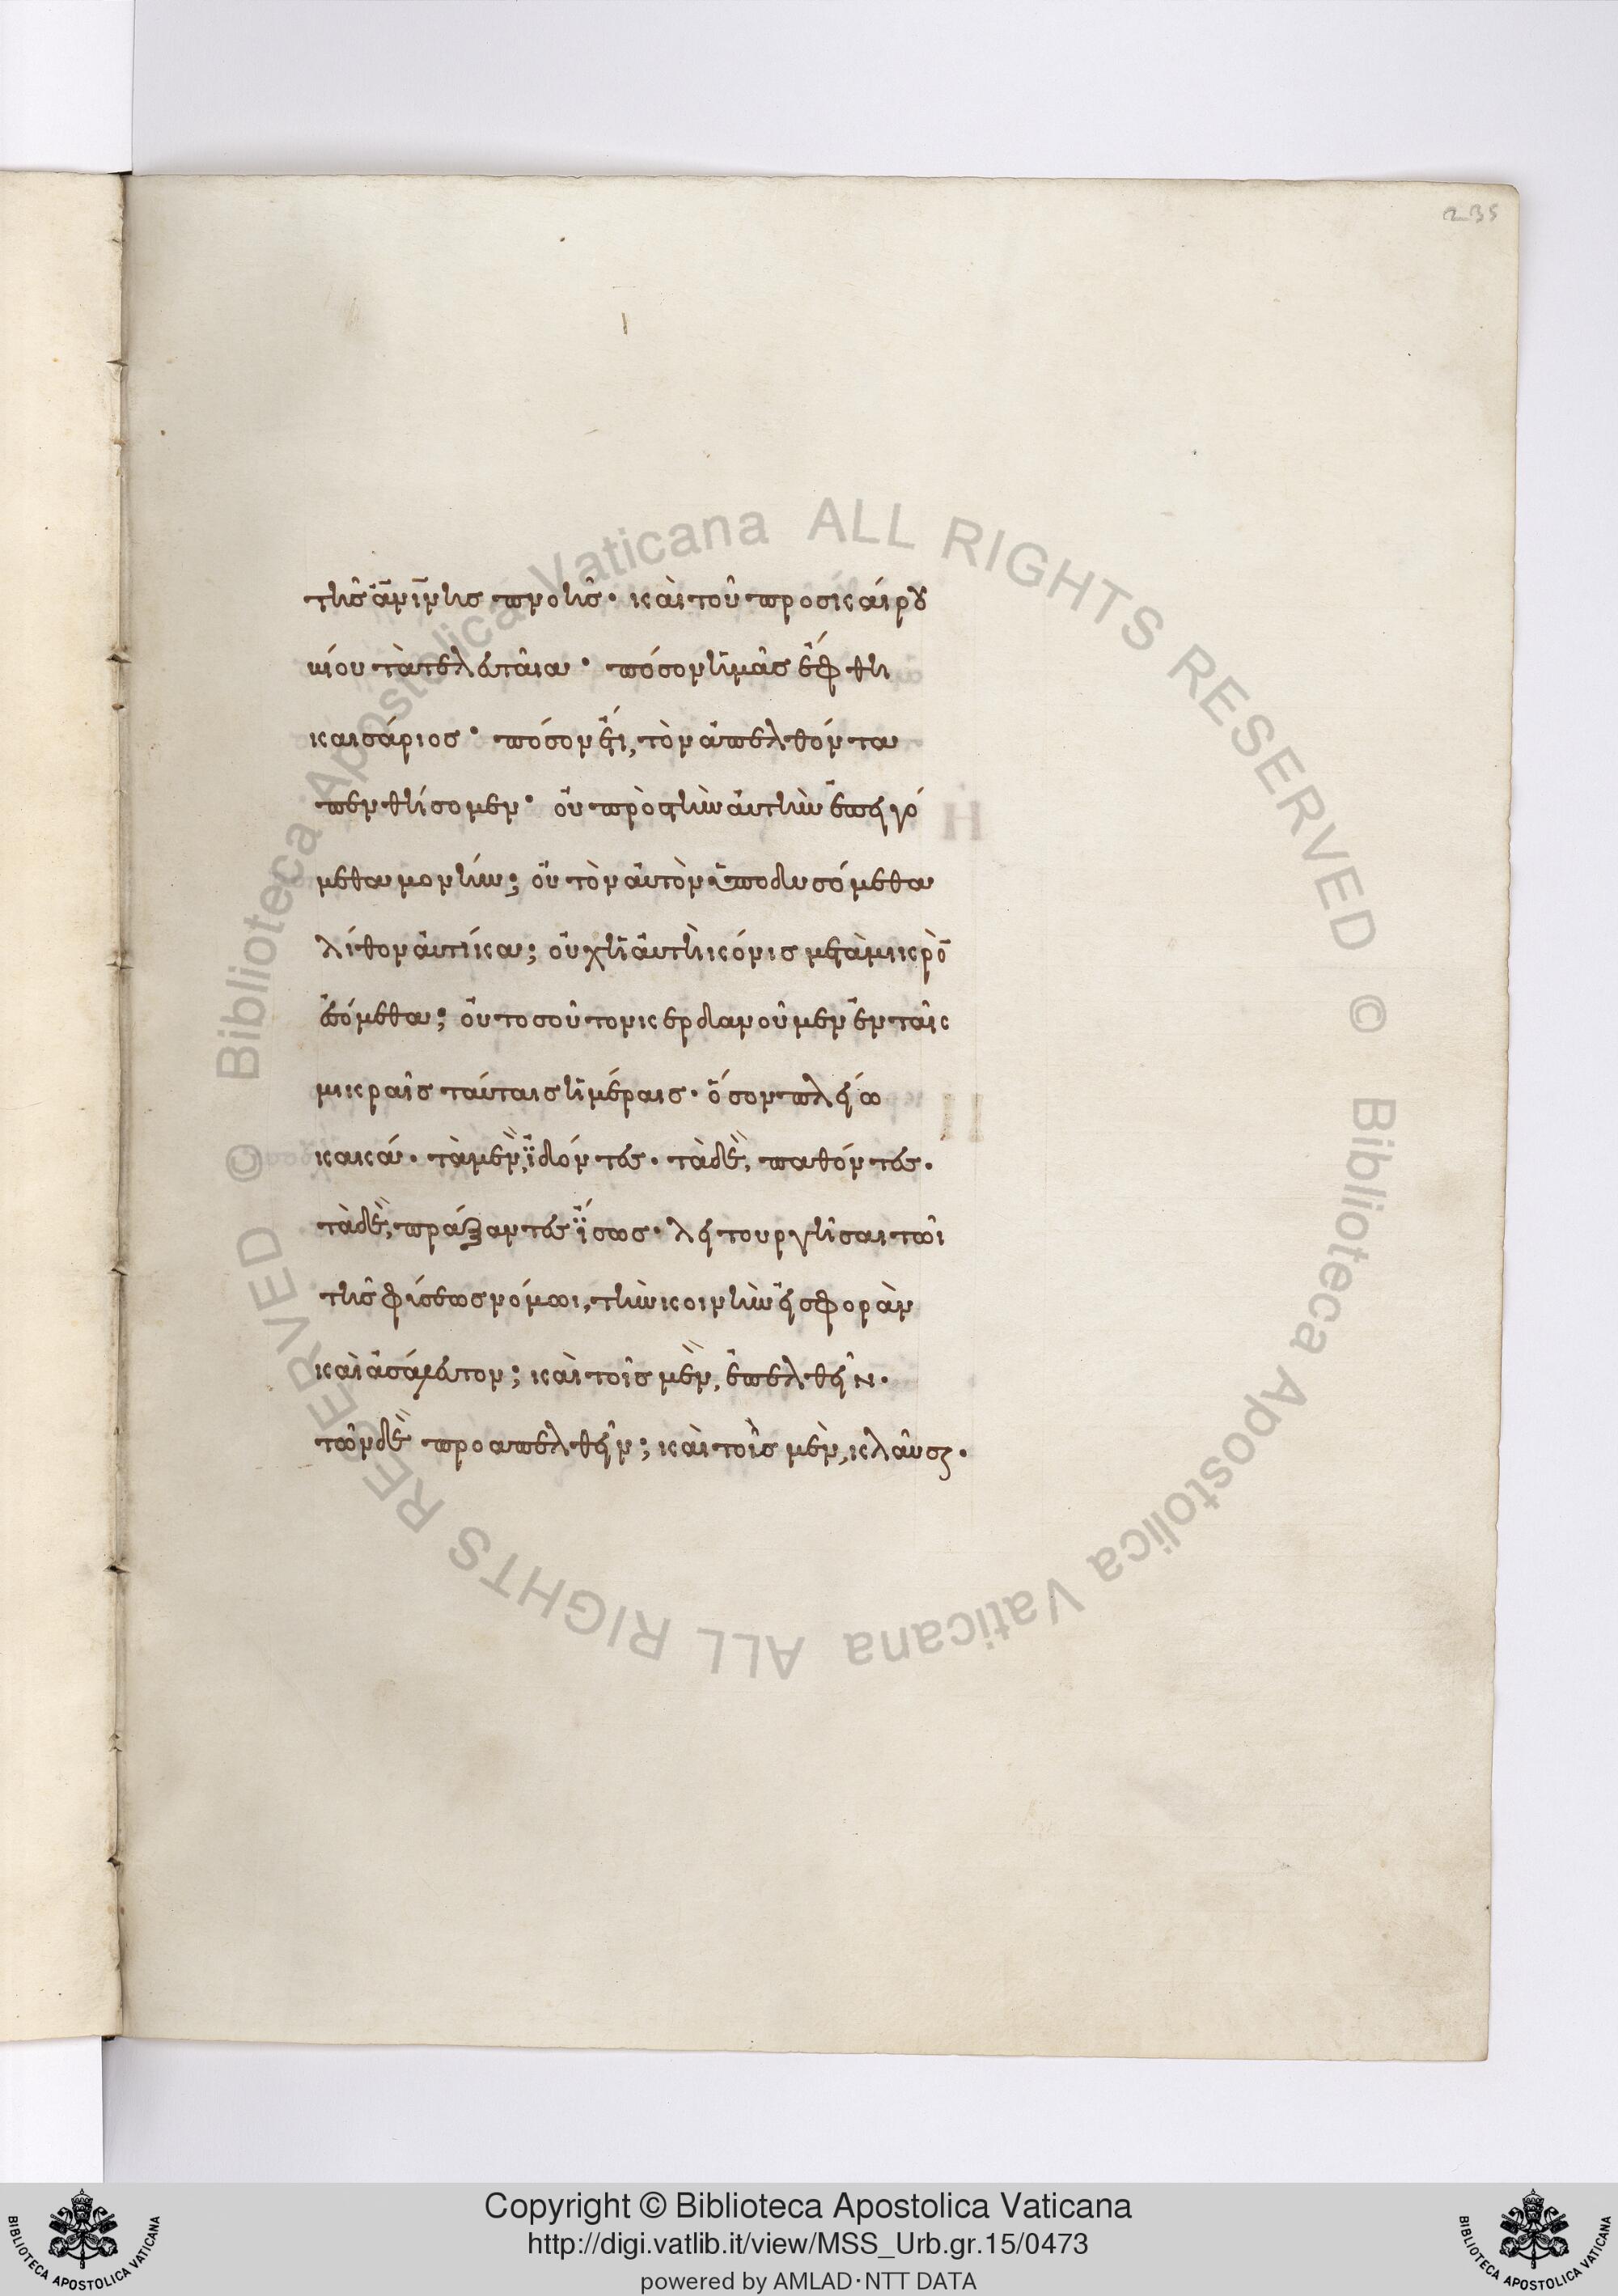 235
τῆς ἁψῖμης πνοῆς· καὶ τοῦ προσκαίρου
βίου τὰ τελευταῖα· πόσον ἡμᾶς ἔφθη
καισάριος· πόσον ἔτι, τὸν ἀπελθόντα
πενθήσομεν· οὐ πρὸς τὴν αὐτὴν ἐπειγό
μεθα μονήν; οὐ τὸν αὐτὸν ὑποδυσόμεθα
λίθον αὐτίκα; οὐχ ἡ αὐτὴ κόνις μετὰ μικρὸν
ἐσόμεθα; οὐ τοσοῦτον κερδανοῦμεν ἐν ταῖς
μικραῖς ταύταις ἡμέραις· ὅσον πλείω
κακά· τὰ μὲν, ἰδόντες· τὰ δὲ, παθόντες·
τὰ δὲ, πράξαντες ἴσως· λειτουργῆσαι τῶι
τῆς φύσεως νόμωι, τὴν κοινὴν εἰσφορὰν
καὶ ἀσάλευτον; καὶ τοῖς μὲν, ἐπελθεῖν·
τῶν δὲ προαπελθεῖν; καὶ τοῖς μὲν, κλαῦσαι·
© Biblioteca Apostolica Vaticana ALL RIGHTS RESERVED
© Biblioteca Apostolica Vaticana ALL RIGHTS RESERVED
Copyright © Biblioteca Apostolica Vaticana
http://digi.vatlib.it/view/MSS_Urb.gr.15/0473
powered by AMLAD・NTT DATA
BIBLIOTECA APOSTOLICA VATICANA
BIBLIOTECA APOSTOLICA VATICANA